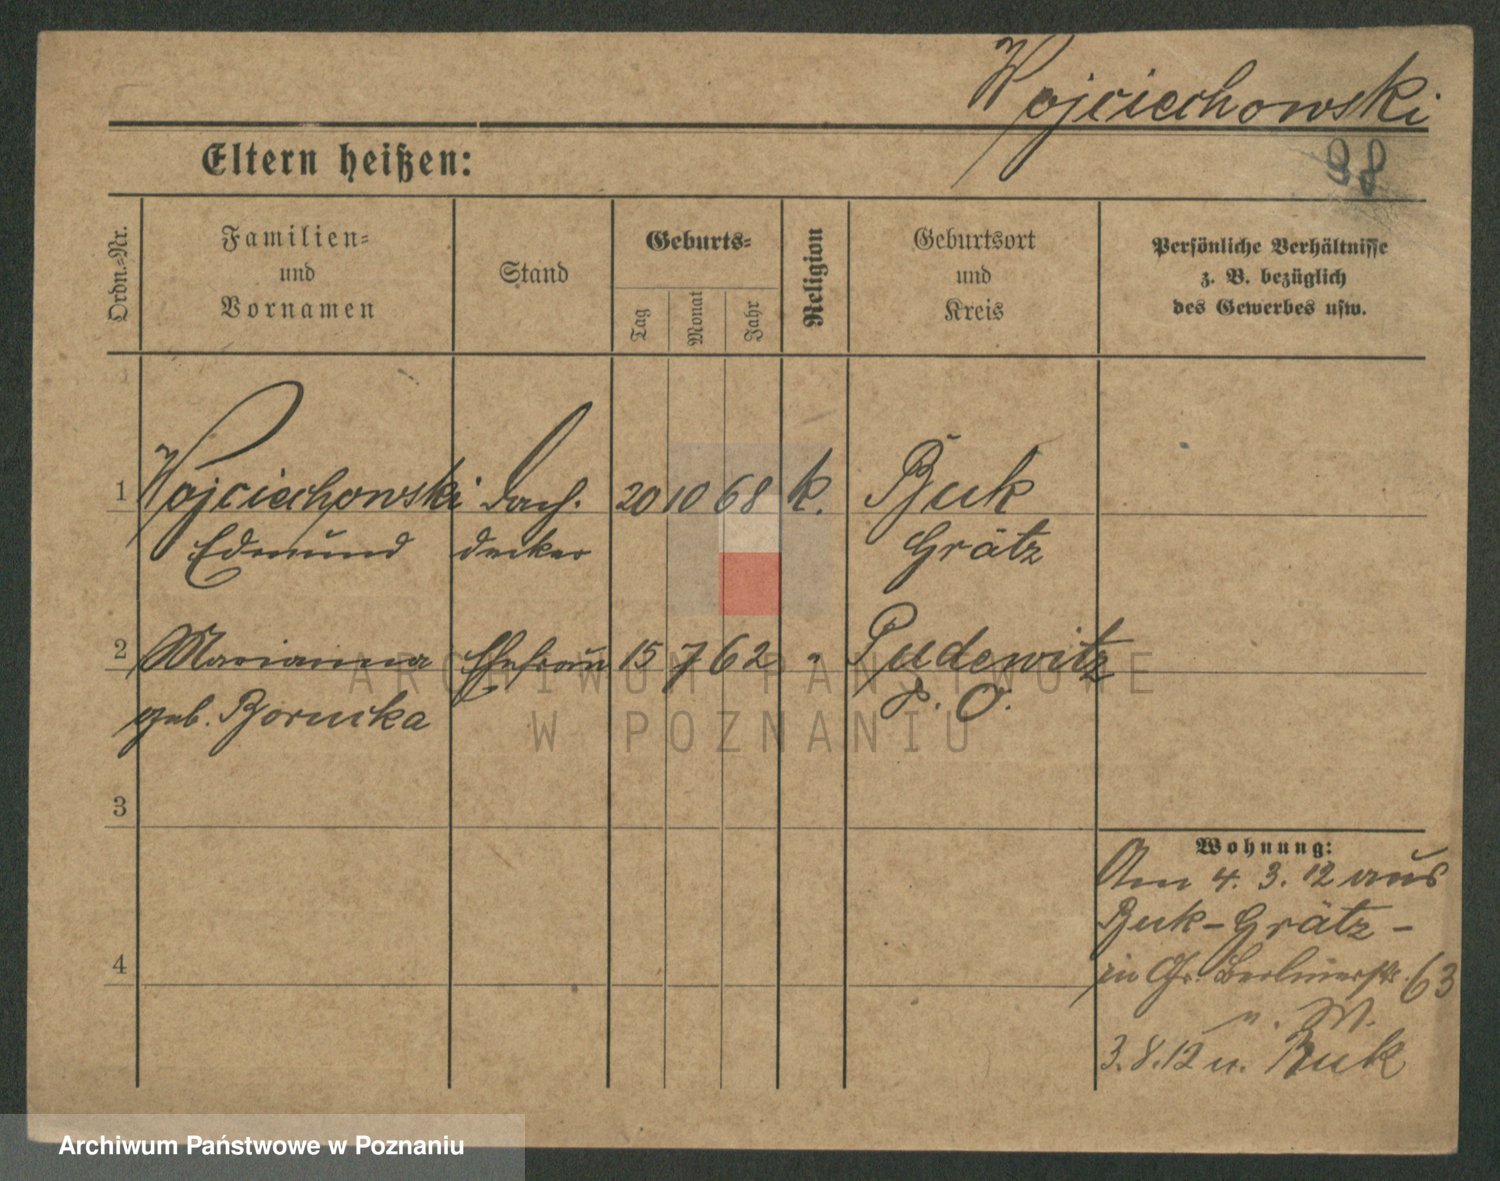 Wojciechowski
98
Eltern heißen:
Ordn.-Nr.
Familien-
und
Vornamen
Stand
Geburts-
Tag
Monat
Jahr
Religion
Geburtsort
und
Kreis
Persönliche Verhältnisse
z. B. bezüglich
des Gewerbes usw.
1 Wojciechowski Dach- 20 10 68 k. Buk
Edmund decker Grätz
2 Marianna Ehefrau 15 7 62 " Pudewitz
geb. Bornicka P. O.
3
4
Wohnung:
Am 4. 3. 12 aus
Buk-Grätz-
in Gr. Berlinerstr. 63
n. W.
3. 8. 12 n. Buk
ARCHIWUM PAŃSTWOWE
W POZNANIU
Archiwum Państwowe w Poznaniu